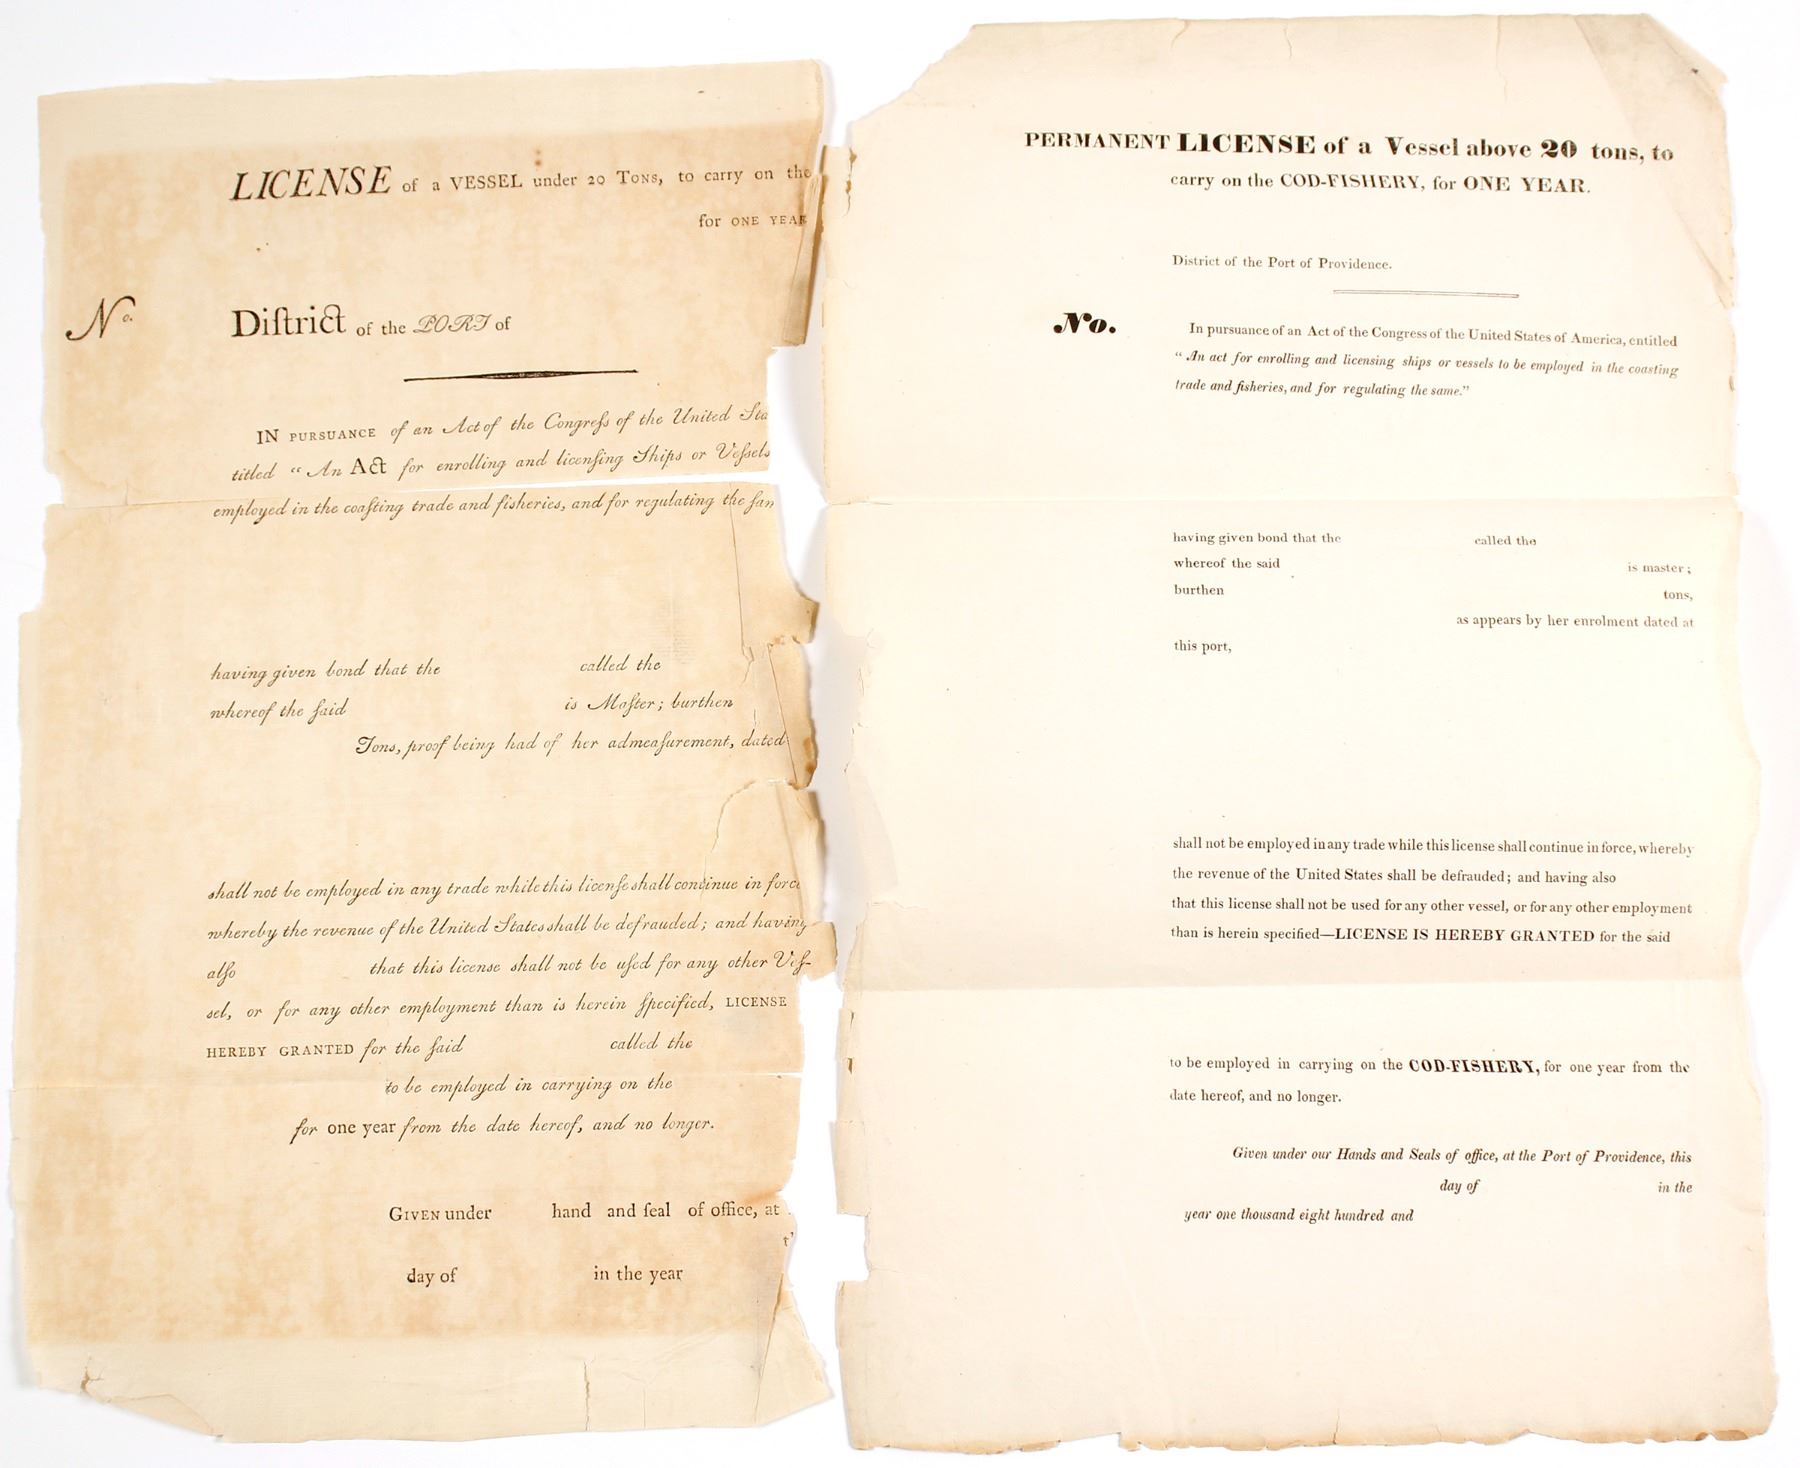 LICENSE of a VESSEL under 20 TONS, to carry on the
for ONE YEAR
No.
Diſtrict of the PORT of
IN PURSUANCE of an Act of the Congreſs of the United Sta
titled “An Act for enrolling and licenſing Ships or Veſsels
employed in the coaſting trade and fisheries, and for regulating the ſam
having given bond that the called the
whereof the ſaid is Maſter; burthen
Tons, proof being had of her admeaſurement, dated
shall not be employed in any trade while this licenſe shall continue in force
whereby the revenue of the United States shall be defrauded; and having
alſo that this license shall not be uſed for any other Veſ-
sel, or for any other employment than is herein ſpecified, LICENSE
HEREBY GRANTED for the ſaid called the
to be employed in carrying on the
for one year from the date hereof, and no longer.
GIVEN under hand and ſeal of office, at
day of in the year
PERMANENT LICENSE of a Vessel above 20 tons, to
carry on the COD-FISHERY, for ONE YEAR.
District of the Port of Providence.
No.
In pursuance of an Act of the Congress of the United States of America, entitled
“An act for enrolling and licensing ships or vessels to be employed in the coasting
trade and fisheries, and for regulating the same.”
having given bond that the called the
whereof the said is master;
burthen tons,
as appears by her enrolment dated at
this port,
shall not be employed in any trade while this license shall continue in force, whereby
the revenue of the United States shall be defrauded; and having also
that this license shall not be used for any other vessel, or for any other employment
than is herein specified—LICENSE IS HEREBY GRANTED for the said
to be employed in carrying on the COD-FISHERY, for one year from the
date hereof, and no longer.
Given under our Hands and Seals of office, at the Port of Providence, this
day of in the
year one thousand eight hundred and